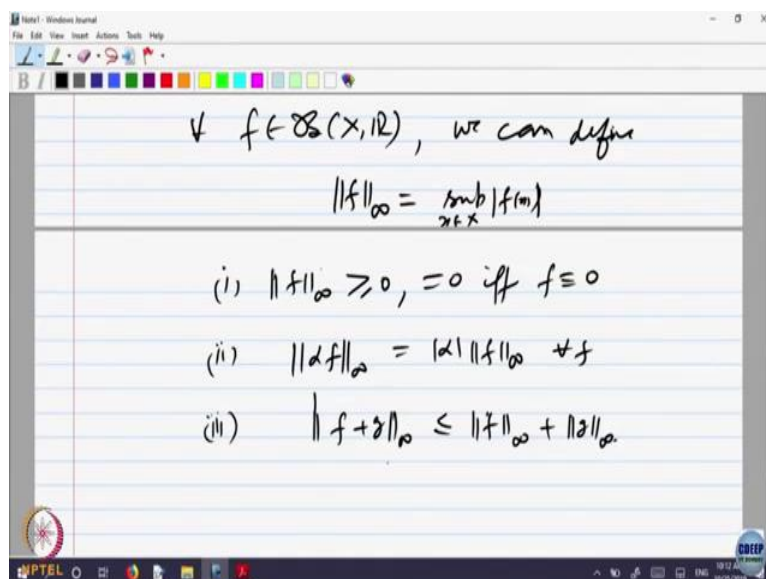 Note1 - Windows Journal
File Edit View Insert Actions Tools Help
B I
∀ f ∈ B(X, IR), we can define
||f||∞ = sup x∈X |f(x)|
(i) ||f||∞ ≥ 0, = 0 iff f ≡ 0
(ii) ||αf||∞ = |α| ||f||∞ ∀ f
(iii) ||f + g||∞ ≤ ||f||∞ + ||g||∞.
NPTEL
ENG
CDEEP